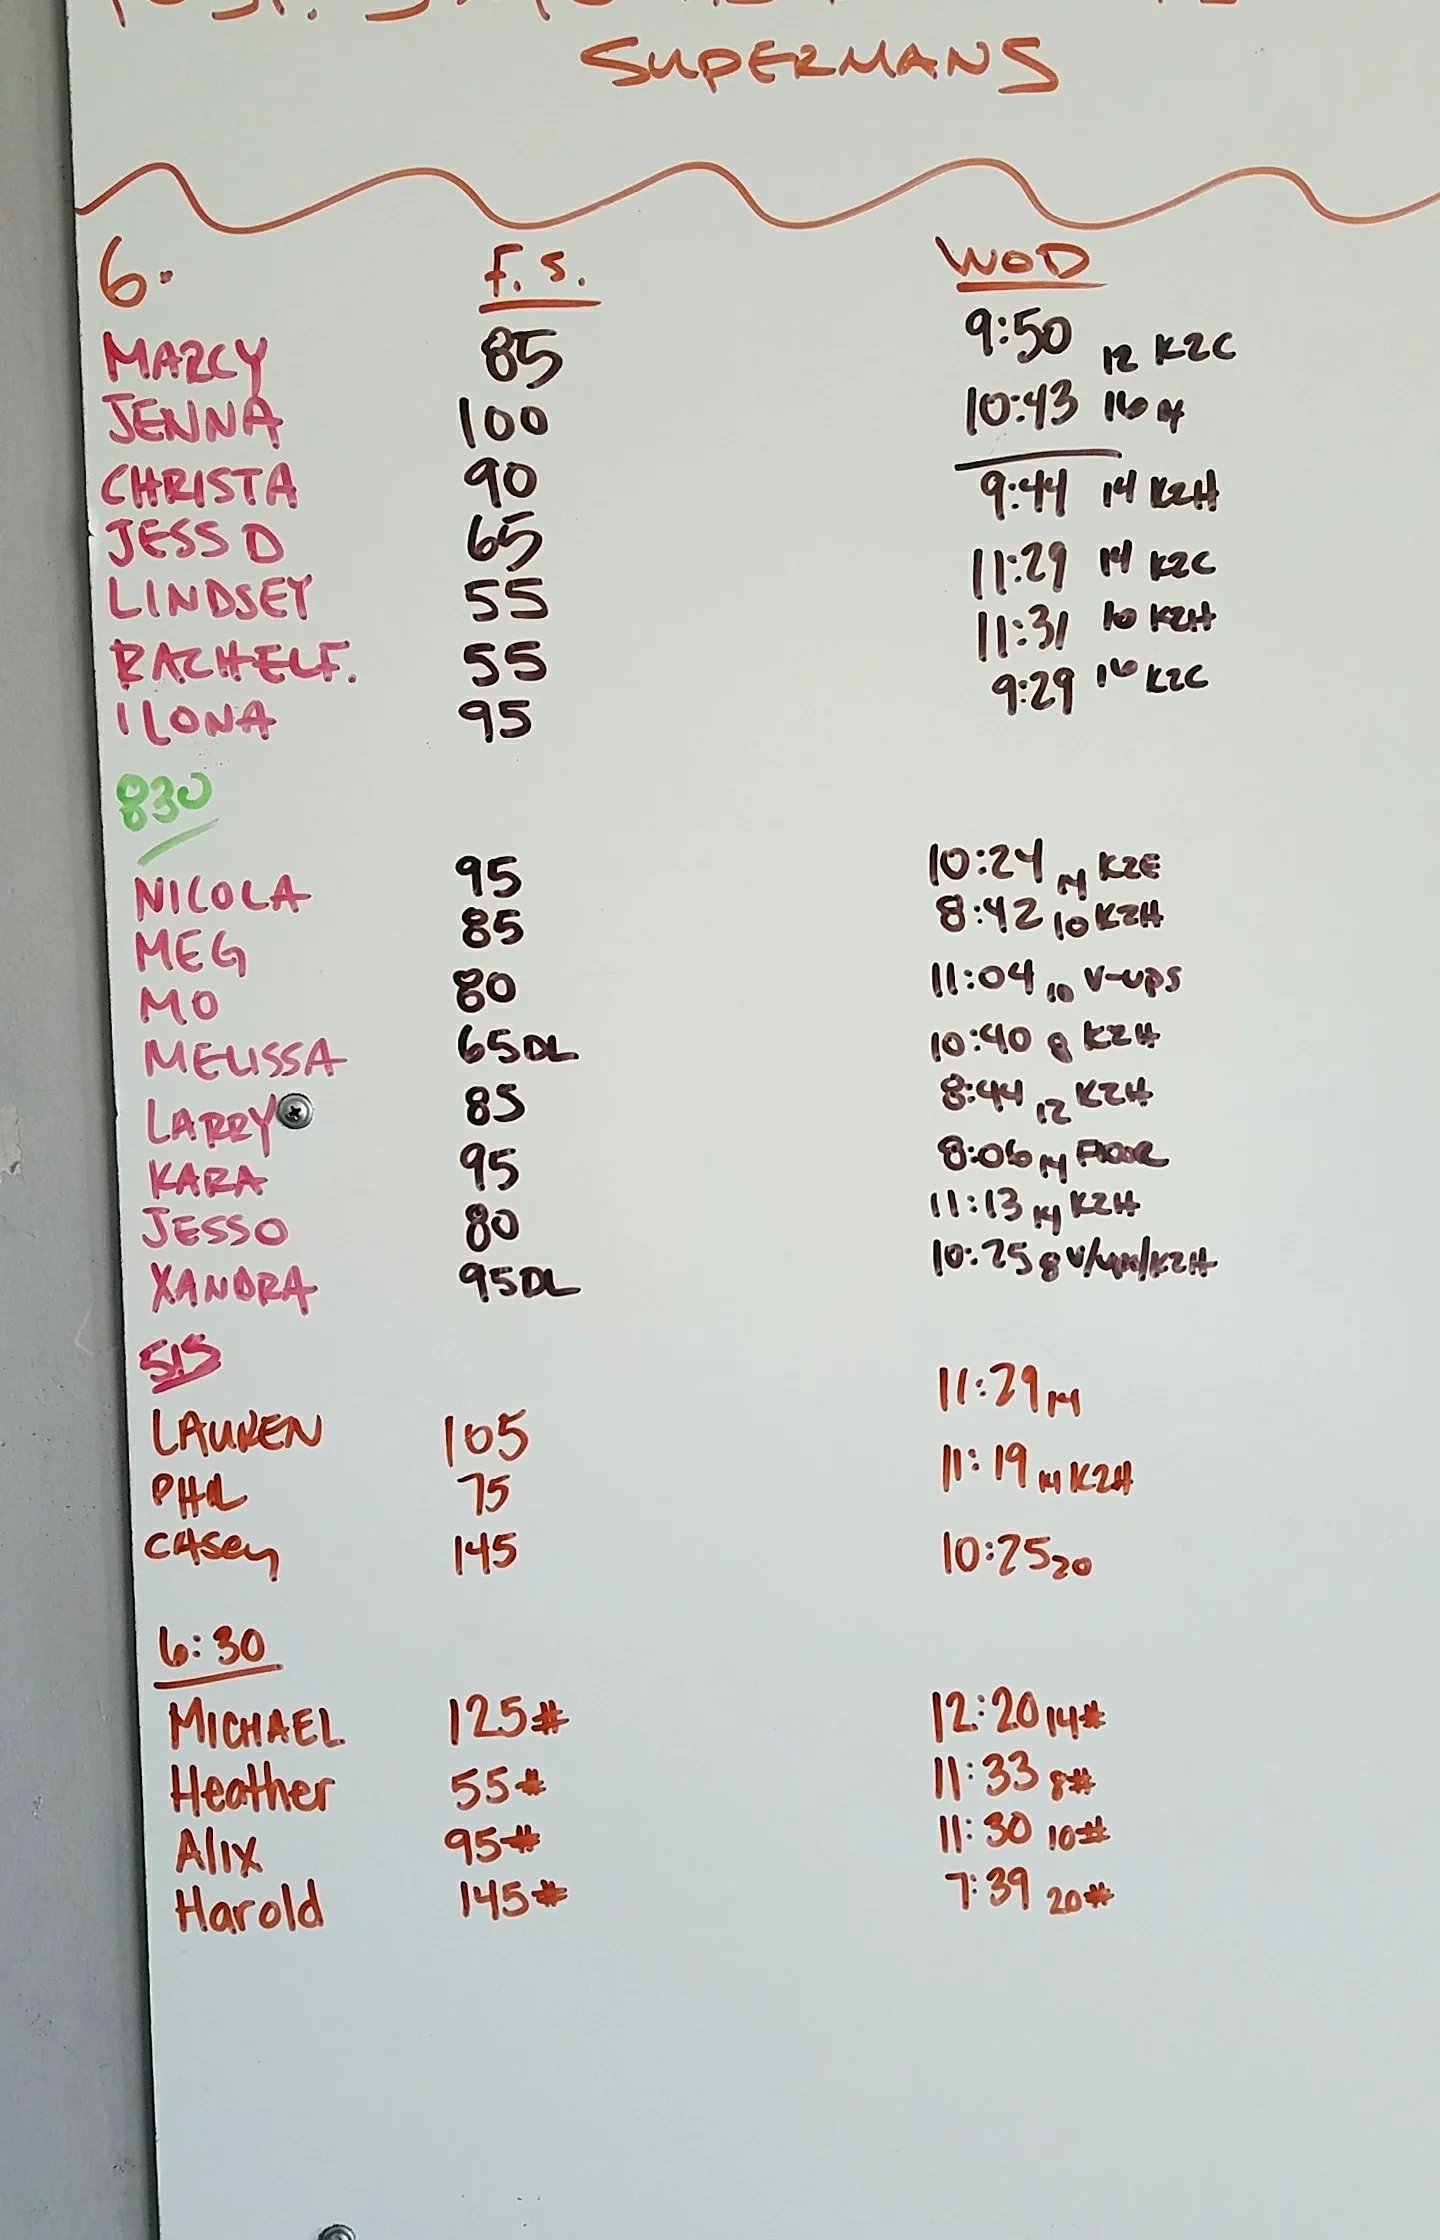 SUPERMANS
6. F.S. WOD
MARCY 85 9:50 12 K2C
JENNA 100 10:43 16
CHRISTA 90
JESS D 65 9:44 14 K2H
LINDSEY 55 11:29 14 K2C
RACHEL F. 55 11:31 10 K2H
ILONA 95 9:29 16 K2C
830
NICOLA 95 10:24 14 K2E
MEG 85 8:42 10 K2H
MO 80 11:04 10 V-UPS
MELISSA 65DL 10:40 8 K2H
LARRY 85 8:44 12 K2H
KARA 95 8:06 14 FLOOR
JESSO 80 11:13 14 K2H
XANDRA 95DL 10:25 8
515
LAUREN 105 11:29 14
PHIL 75 11:19 14 K2H
CASEY 145 10:25 20
6:30
MICHAEL 125# 12:20 14#
Heather 55# 11:33 8#
Alix 95# 11:30 10#
Harold 145# 7:39 20#